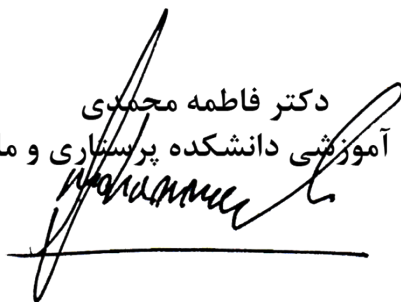 دکتر فاطمه محمدی
آموزشی دانشکده پرستاری و ما